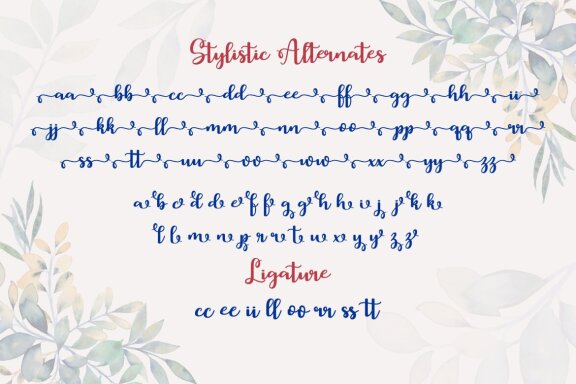 Stylistic Alternates
aa bb cc dd ee ff gg hh ii
jj kk ll mm nn oo pp qq rr
ss tt uu vv ww xx yy zz
a b c d d e f f g g h h i j j k k
l l m n p r r t w x y y z z
Ligature
cc ee ii ll oo rr ss tt